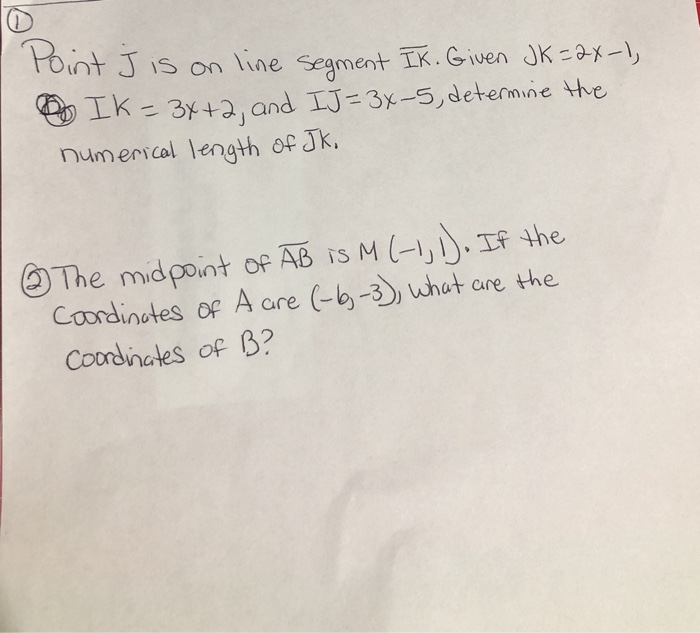 ①
Point J is on line segment I̅K̅. Given JK = 2x-1,
IK = 3x+2, and IJ = 3x-5, determine the
numerical length of JK.
② The midpoint of A̅B̅ is M (-1,1). If the
Coordinates of A are (-6,-3), what are the
Coordinates of B?